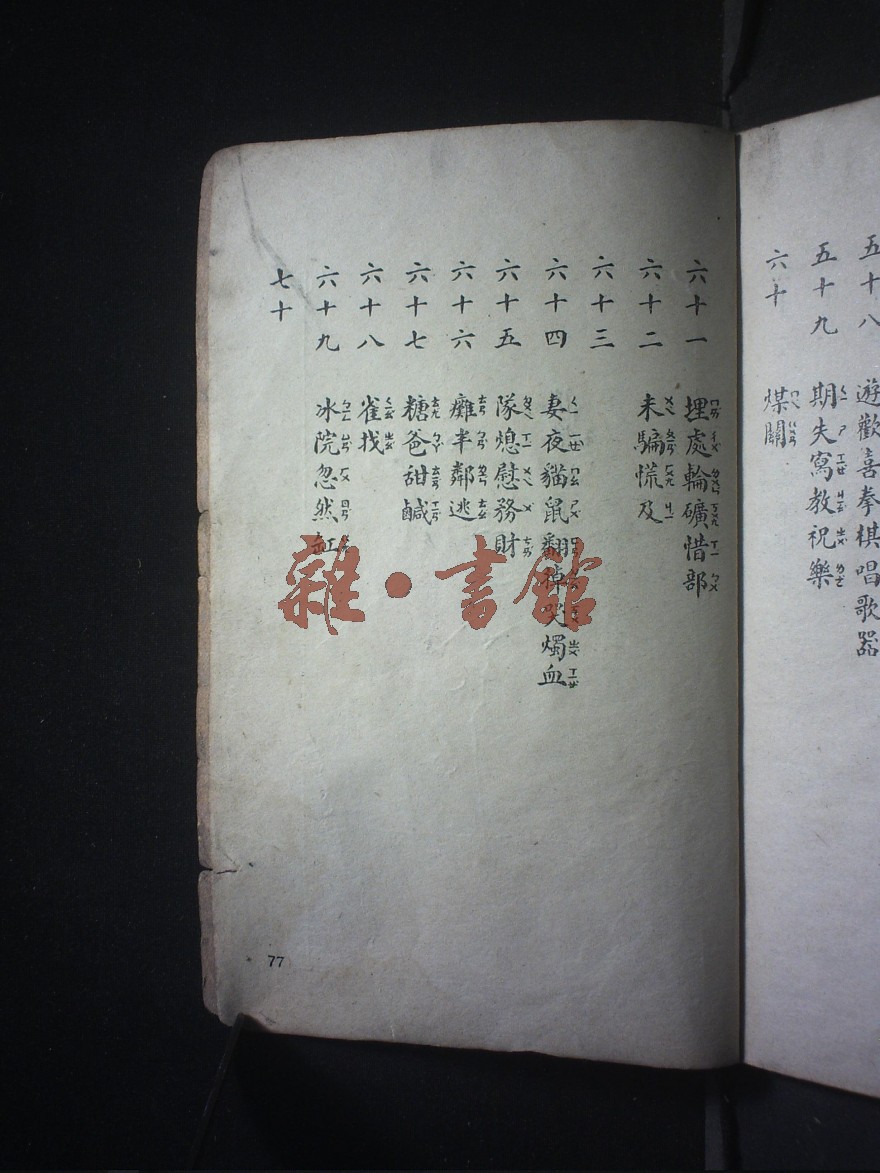 五十八 遊歡喜拳棋唱歌器
五十九 期失寫教祝樂
六十 煤關
六十一 埋處輪礦惜部
六十二 未騙慌及
六十三
六十四 妻夜貓鼠翻掉哭燭血
六十五 隊熄慰務財
六十六 癱半鄰逃
六十七 糖爸甜鹹
六十八 雀找
六十九 冰院忽然缸
七十
雜·書館
77